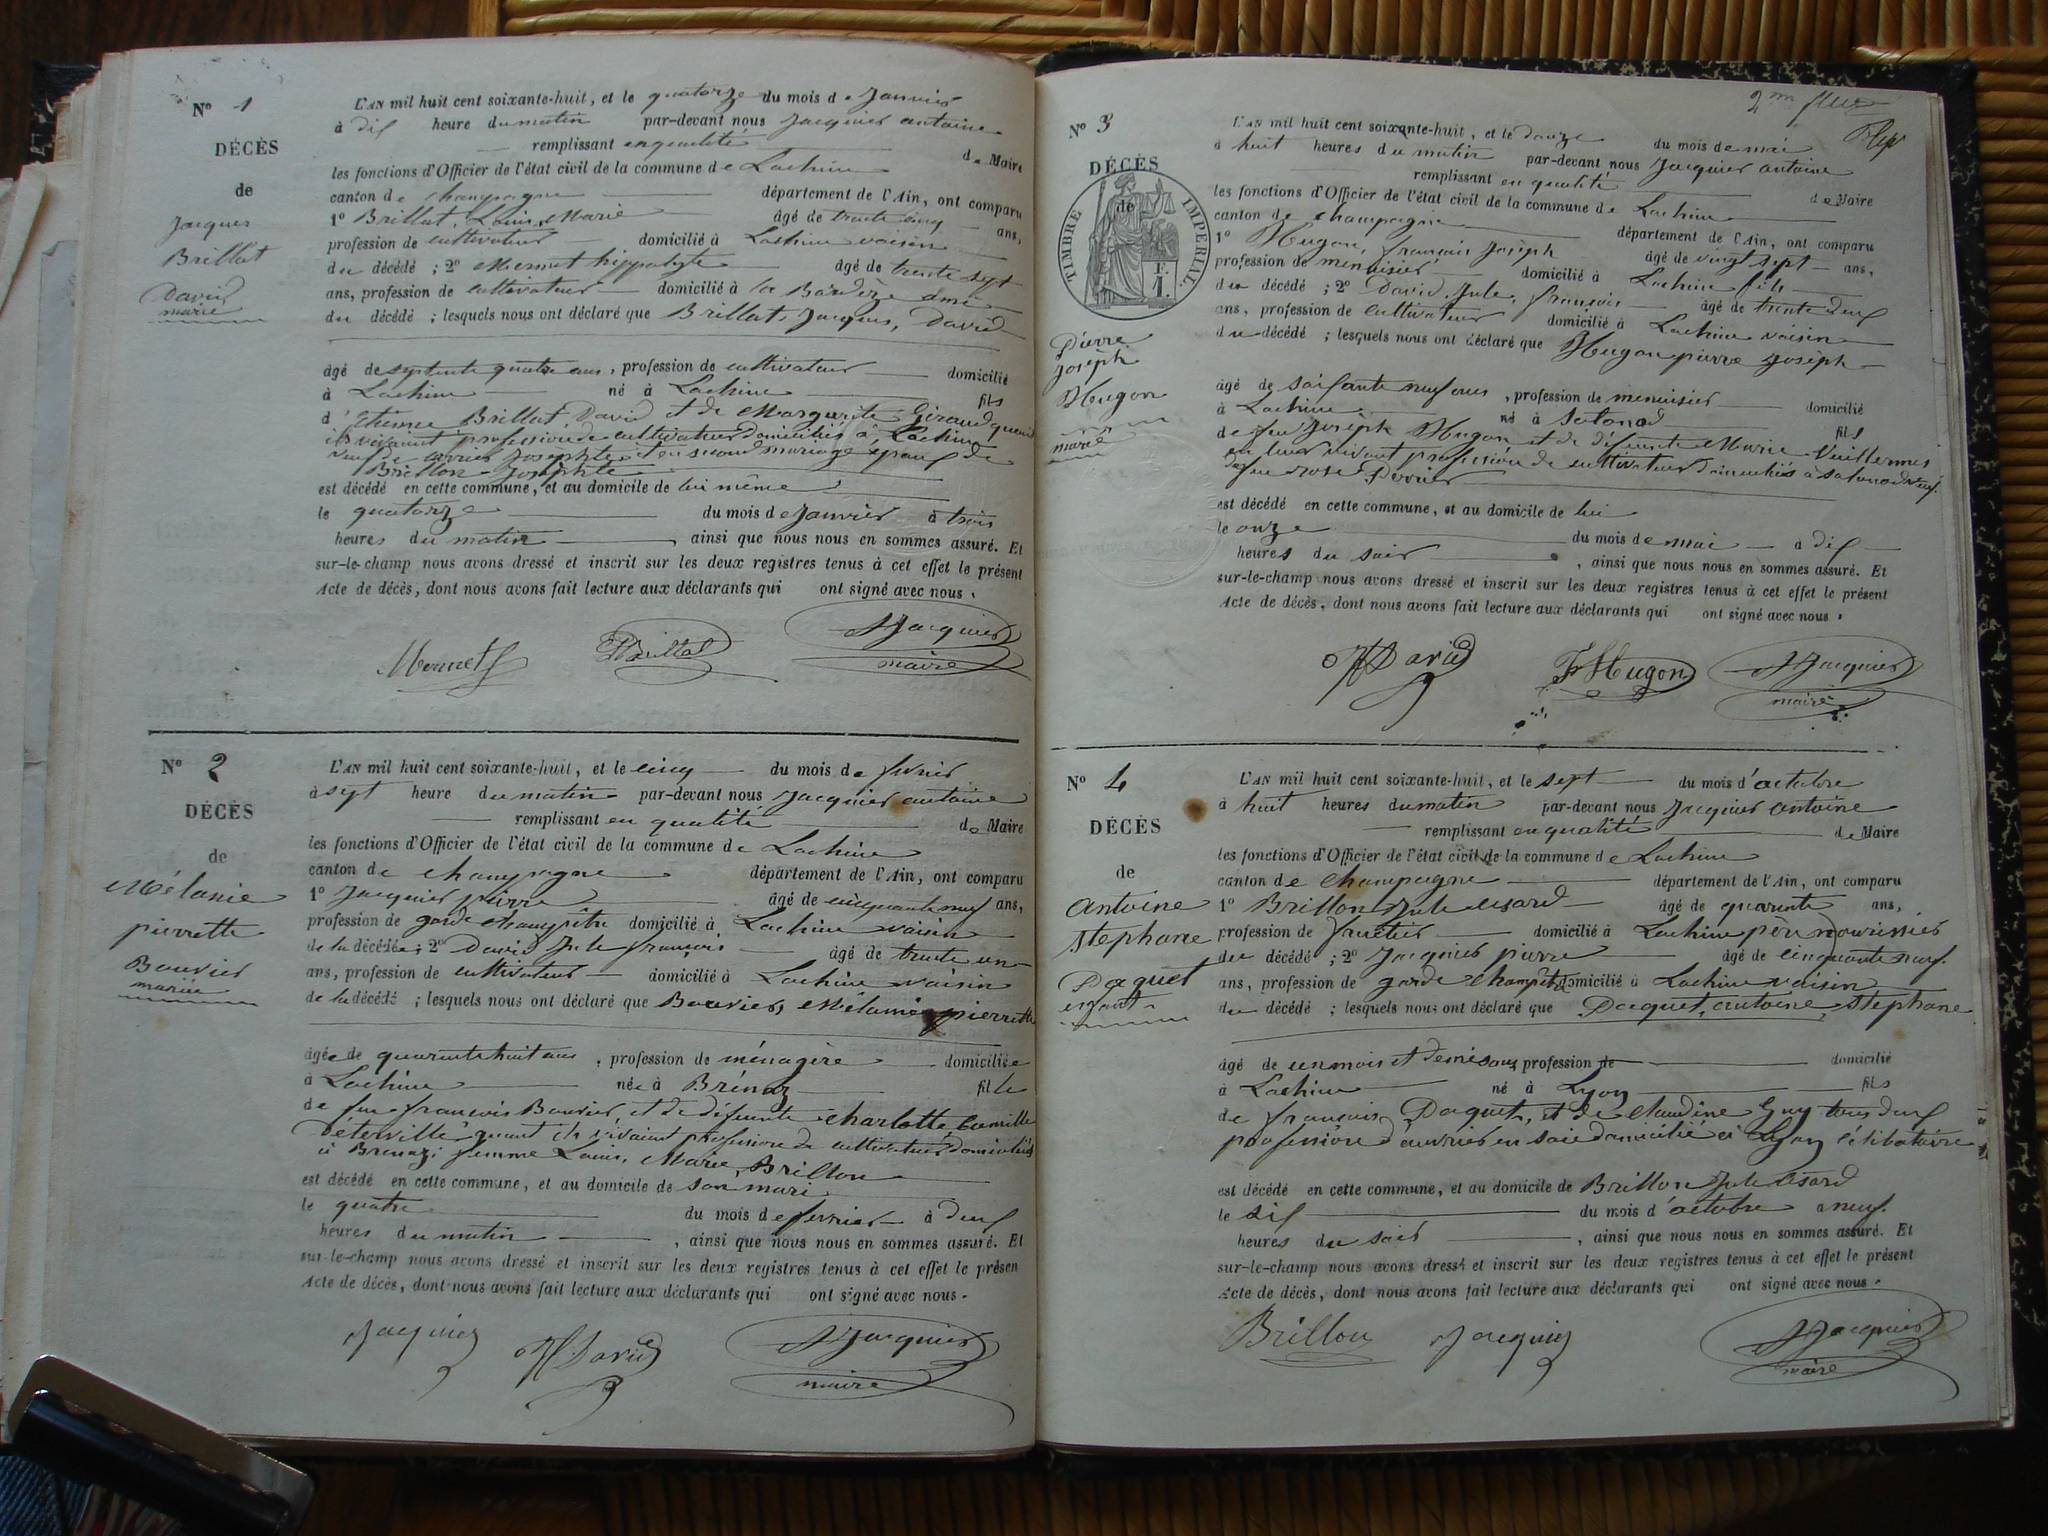 N° 1
DÉCÈS
de
Jacques
Brillat
David
marié
L'AN mil huit cent soixante-huit, et le quatorze du mois de Janvier
à dix heure du matin par-devant nous Jacquier antoine
remplissant en qualité de Maire
les fonctions d'Officier de l'état civil de la commune de Lochieu
canton de champagne département de l'Ain, ont comparu
1° Brillat, Louis, Marie âgé de trente cinq ans,
profession de cultivateur domicilié à Lochieu voisin
du décédé ; 2° Mermet hippolyte âgé de trente sept
ans, profession de cultivateur domicilié à la ami
du décédé ; lesquels nous ont déclaré que Brillat, Jacques, David
âgé de septente quatre ans, profession de cultivateur domicilié
à Lochieu né à Lochieu fils
d'étienne Brillat, David et de Margurite Giraud quand
ils vivaient profession de cultivateur domiciliés à Lochieu
veuf de Josephte et en second mariage epoux de
Brillon Josephte
est décédé en cette commune, et au domicile de lui même
le quatorze du mois de Janvier à trois
heures du matin, ainsi que nous nous en sommes assuré. Et
sur-le-champ nous avons dressé et inscrit sur les deux registres tenus à cet effet le présent
Acte de décès, dont nous avons fait lecture aux déclarants qui ont signé avec nous.
Mermet Brillat Jacquier
maire
N° 2
DÉCÈS
de
Mélanie
pierrette
Bouvier
mariée
L'AN mil huit cent soixante-huit, et le cinq du mois de fevrier
à sept heure du matin par-devant nous Jacquier antoine
remplissant en qualité de Maire
les fonctions d'Officier de l'état civil de la commune de Lochieu
canton de champagne département de l'Ain, ont comparu
1° Jacquier pierre âgé de cinquante neuf ans,
profession de garde champêtre domicilié à Lochieu voisin
de la décédée ; 2° David Jule françois âgé de trente un
ans, profession de cultivateur domicilié à Lochieu voisin
de la décédé ; lesquels nous ont déclaré que Bouvier, Mélanie pierrette
âgée de quarante huit ans, profession de ménagère domiciliée
à Lochieu née à Brénaz fille
de feu françois Bouvier, et de défunte charlotte Camille
Déterville quant ils vivaient profession de cultivateur domiciliés
à Brenaz, femme Louis, Marie, Brillon
est décédé en cette commune, et au domicile de son mari
le quatre du mois de fevrier à deux
heures du matin, ainsi que nous nous en sommes assuré. Et
sur-le-champ nous avons dressé et inscrit sur les deux registres tenus à cet effet le présen
Acte de décès, dont nous avons fait lecture aux déclarants qui ont signé avec nous.
Jacquier David Jacquier
maire
2me
N° 3
DÉCÈS
de
TIMBRE IMPERIAL
Pierre
Joseph
Hugon
marié
L'AN mil huit cent soixante-huit, et le douze du mois de mai
à huit heures du matin par-devant nous Jacquier antoine
remplissant en qualité de Maire
les fonctions d'Officier de l'état civil de la commune de Lochieu
canton de champagne département de l'Ain, ont comparu
1° Hugon, françois Joseph âgé de vingt sept ans,
profession de menuisier domicilié à Lochieu fils
du décédé ; 2° David, Jule, françois âgé de trente deux
ans, profession de cultivateur domicilié à Lochieu voisin
du décédé ; lesquels nous ont déclaré que Hugon pierre Joseph
âgé de soixante neuf ans, profession de menuisier domicilié
à Lochieu né à Sotonod fils
de feu Joseph Hugon et de défunte Marie Vuillermes
en leur vivant profession de cultivateur domiciliés à sotonod veuf
de feu rose Perrier
est décédé en cette commune, et au domicile de lui
le onze du mois de mai à dix
heures du soir, ainsi que nous nous en sommes assuré. Et
sur-le-champ nous avons dressé et inscrit sur les deux registres tenus à cet effet le présent
Acte de décès, dont nous avons fait lecture aux déclarants qui ont signé avec nous.
David F Hugon Jacquier
maire
N° 4
DÉCÈS
de
antoine
Stephane
Paquet
enfant
L'AN mil huit cent soixante-huit, et le sept du mois d'octobre
à huit heures du matin par-devant nous Jacquier antoine
remplissant en qualité de Maire
les fonctions d'Officier de l'état civil de la commune de Lochieu
canton de Champagne département de l'Ain, ont comparu
1° Brillon Jule césard âgé de quarante ans,
profession de fruitier domicilié à Lochieu père nourissier
du décédé ; 2° Jacquier pierre âgé de cinquante neuf
ans, profession de garde champêtre domicilié à Lochieu voisin
du décédé ; lesquels nous ont déclaré que Paquet, antoine, Stephane
âgé de un mois et demi sans profession de domicilié
à Lochieu né à Lyon fils
de françois Paquet, et de claudine Guy tous deux
profession d'ouvrier en soie domicilié à Lyon célibataire
est décédé en cette commune, et au domicile de Brillon Jule césard
le six du mois d'octobre a neuf
heures du soir, ainsi que nous nous en sommes assuré. Et
sur-le-champ nous avons dressé et inscrit sur les deux registres tenus à cet effet le présent
Acte de décès, dont nous avons fait lecture aux déclarants qui ont signé avec nous.
Brillon Jacquier Jacquier
maire